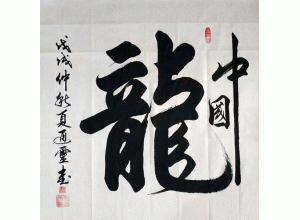 中國
龍
戊戌仲秋夏通靈書